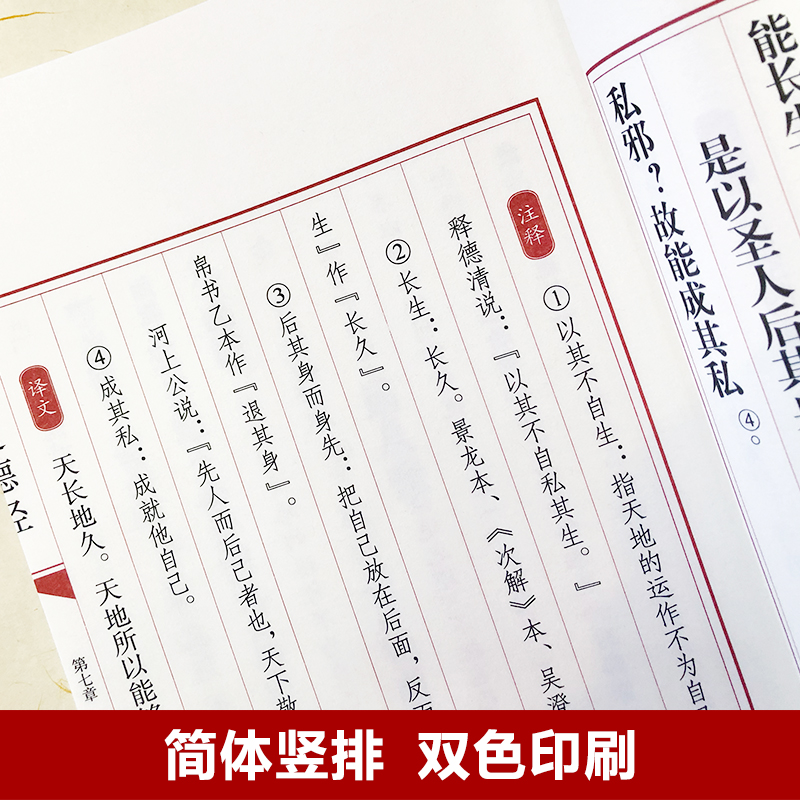 能长生
是以圣人后其身
私邪？故能成其私④。
注释
①以其不自生：指天地的运作不为自己
释德清说：『以其不自私其生。』
②长生：长久。景龙本、《次解》本、吴澄
生』作『长久』。
③后其身而身先：把自己放在后面，反而
帛书乙本作『退其身』。
河上公说：『先人而后己者也，天下敬
④成其私：成就他自己。
译文
天长地久。天地所以能够
德经
第七章
简体竖排 双色印刷